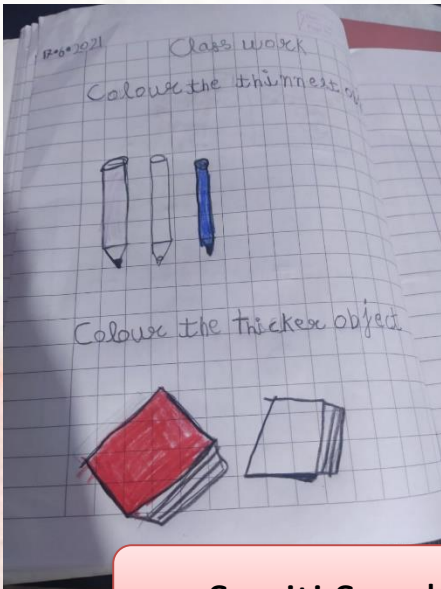 17.6.2021
Class work
Colour the thinnest
Colour the thicker object